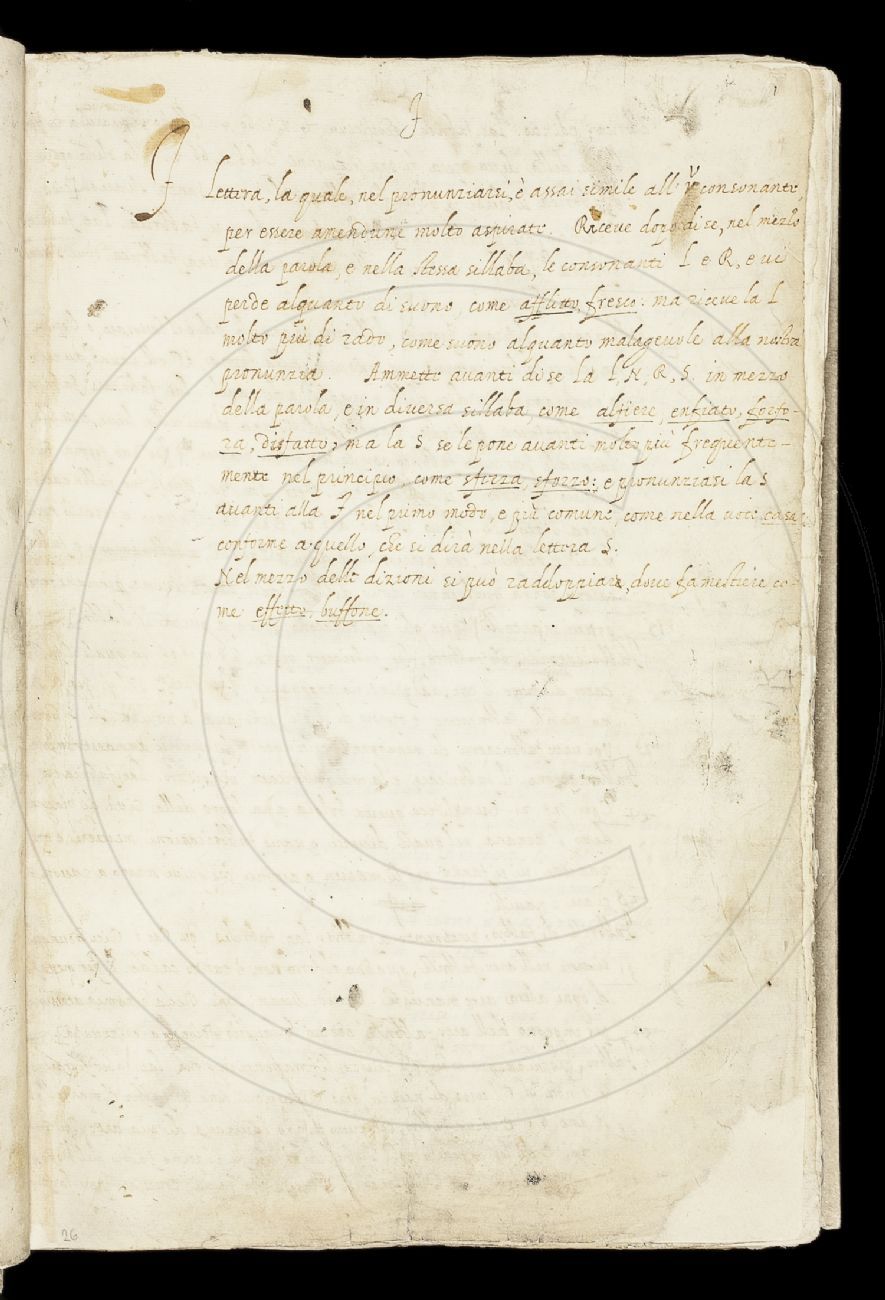 F
F Lettera, la quale, nel pronunziarsi, è assai simile all' V consonante,
per essere amendune molto aspirate. Riceve dopo di se, nel mezzo
della parola, e nella stessa sillaba, le consonanti L e R, e vi
perde alquanto di suono, come afflitto, fresco: ma riceve la L
molto più di rado, come suono alquanto malagevole alla nostra
pronunzia. Ammette avanti di se la L, N, R, S. in mezzo
della parola, e in diversa sillaba come alfiere, enfiato, forfo-
ra, disfatto; ma la S se le pone avanti molto più frequente-
mente nel principio, come sferza, sforzo: e pronunziasi la S
avanti alla F nel primo modo, e più comune, come nella voce casa,
conforme a quello, che si dirà nella lettera S.
Nel mezzo delle dizioni si può raddoppiare, dove fa mestiere co-
me effetto, buffone.
26